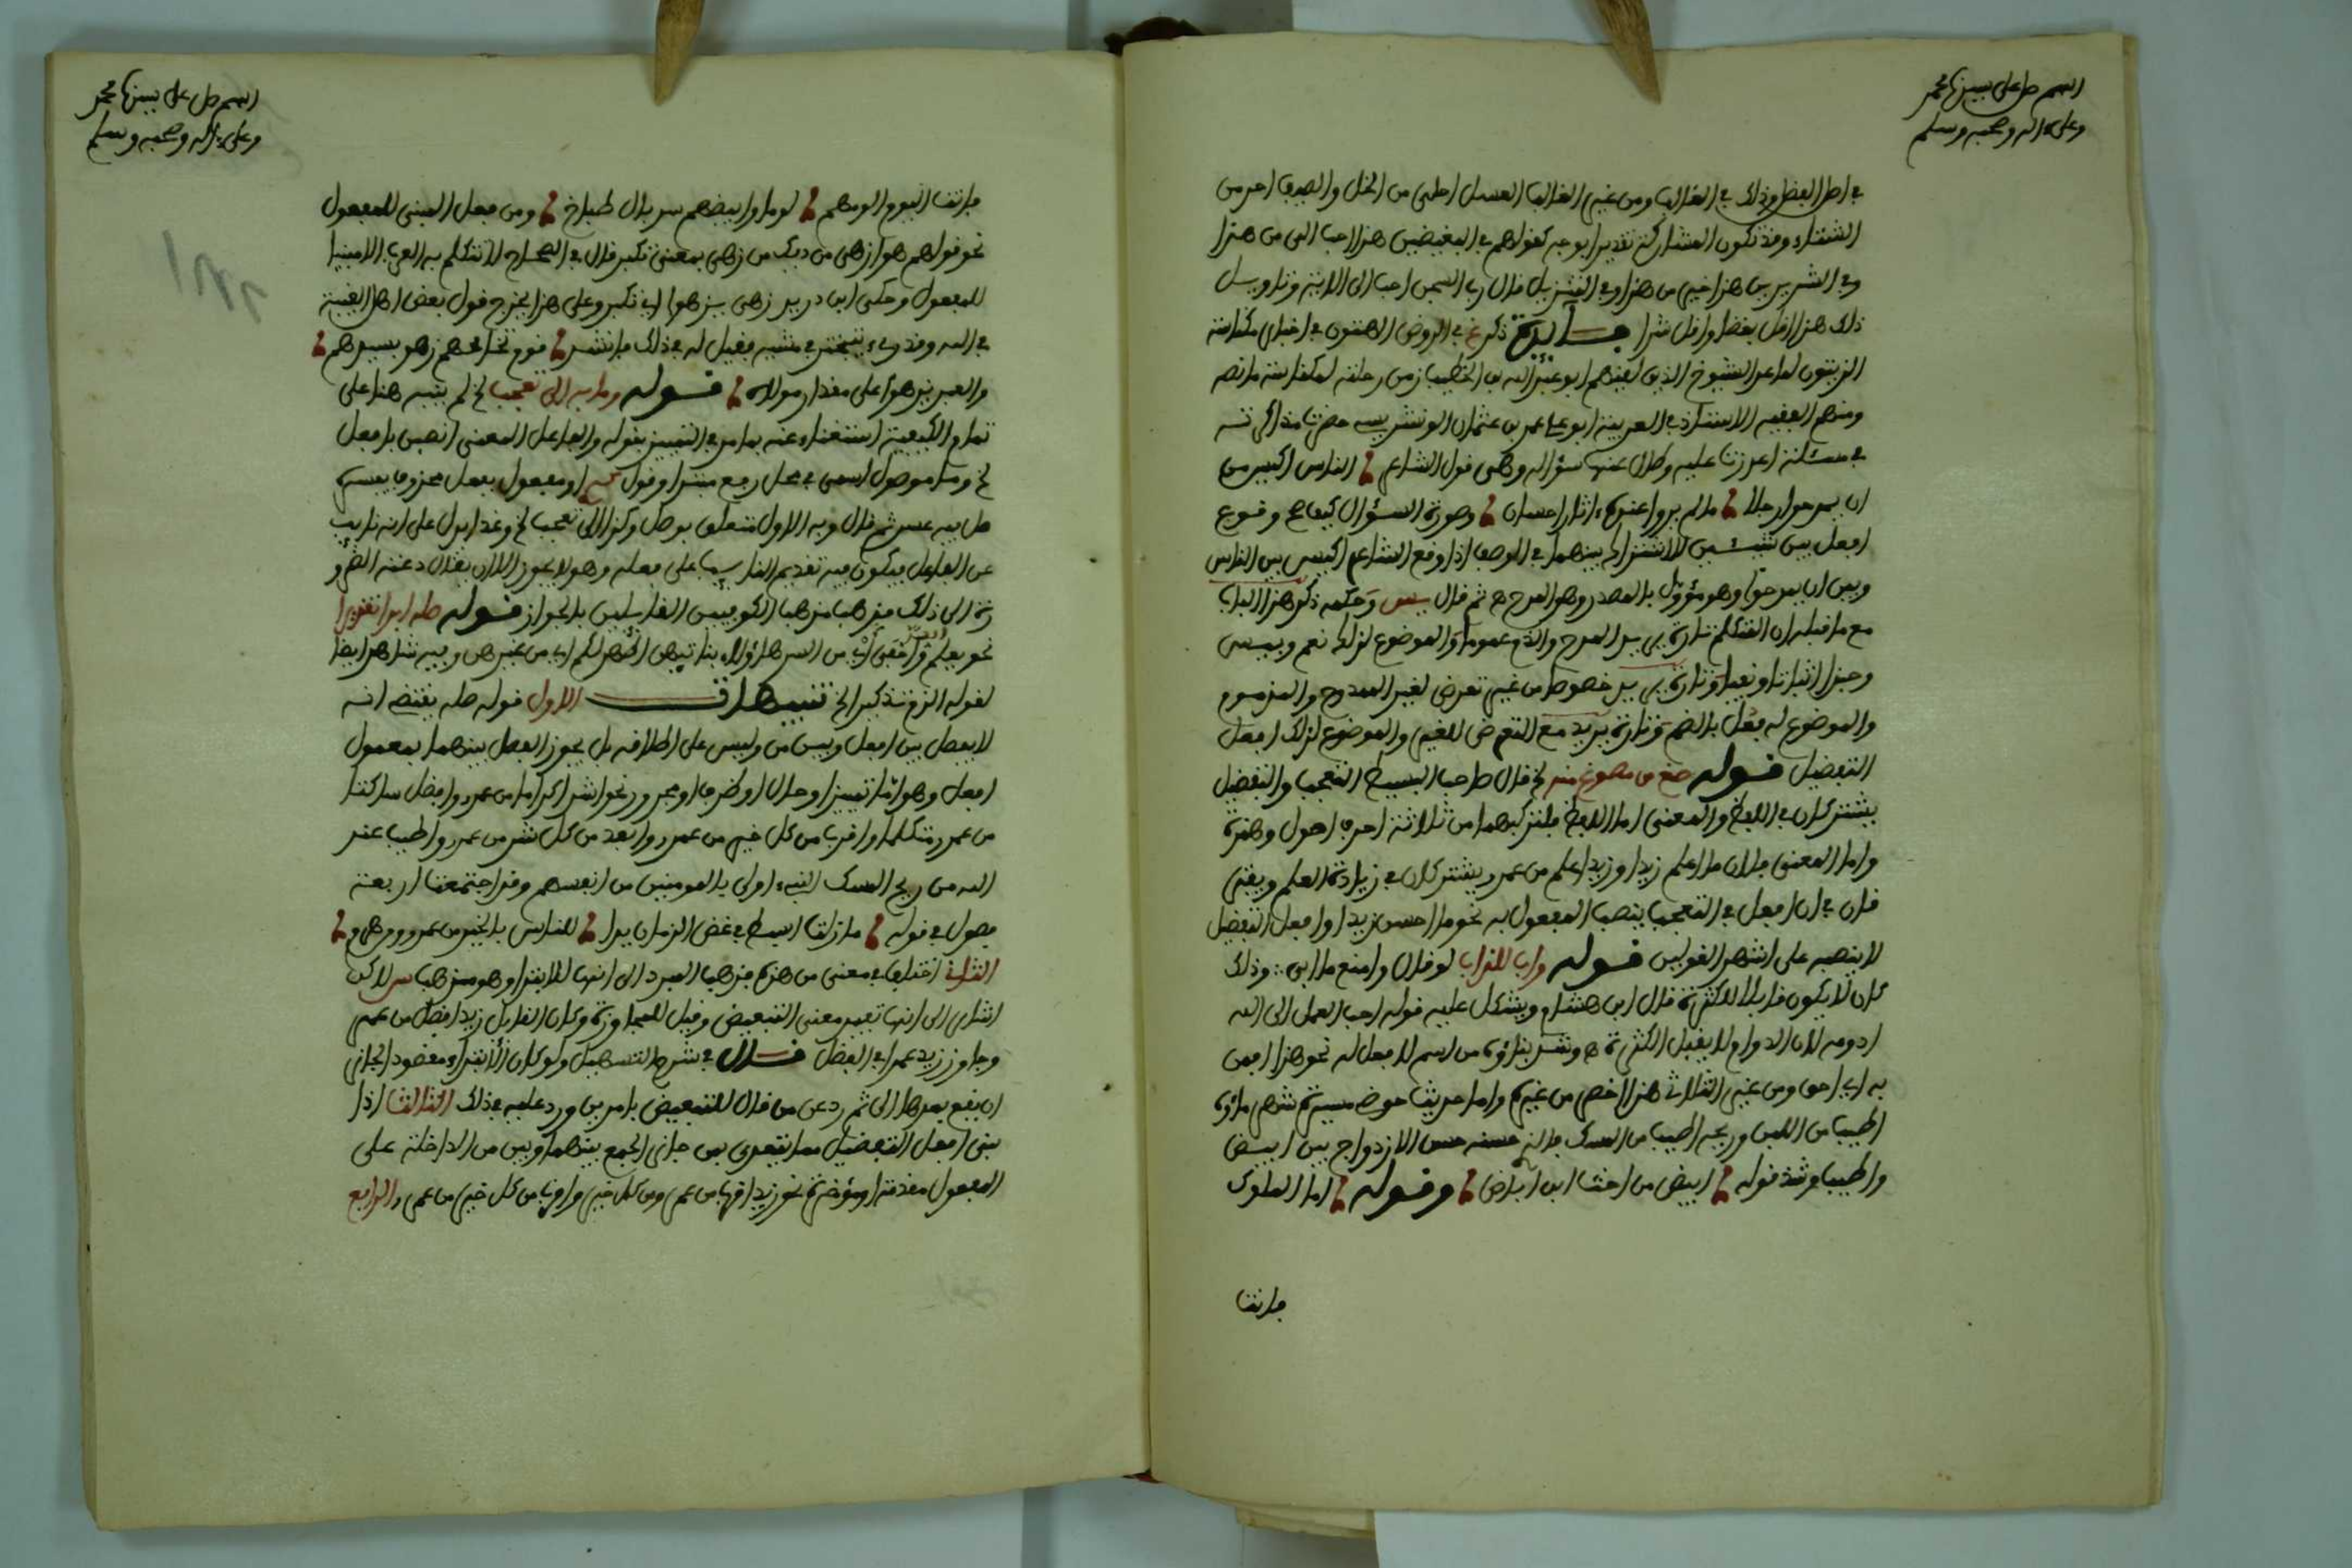 اللهم صل على سيدنا محمد
وعلى ءاله وصحبه وسلم
في اصل الفعل وذلك في الغالب ومن غير الغالب العسل احلى من الخل والصيف احر من
الشتاء وقد تكون المشاركة تقديرا بوجه كقولهم في البغيضين هذا احب الي من هذا
وفي الشريرين هذا خير من هذا وفي التنزيل قال رب السجن احب الي الاية وتاويل
ذلك هذا اقل بغضا واقل شرا فايدة ذكر غ في الروض الهتون في اخبار مكناسة
الزيتون لما عد الشيوخ الذين لقيهم ابو عبد الله بن الخطيب زمن رحلته لمكناسة ما نصه
ومنهم الفقيه الاستاذ في العربية ابو علي عمر بن عثمان الونشريسي حضرت مذاكرته
في مسئلة اعوزت عليه وطال عنها سؤاله وهي قول الشاعر الناس اكيس من
ان يمدحوا رجلا ما لم يروا عنده ءاثار احسان وصورة السؤال كيف صح وقوع
افعل بين شيئين لا اشتراك بينهما في الوصف اذ اوقع الشاعر اكيس بين الناس
وبين ان يمدحوا وهو مؤول بالمصدر وهو المدح ثم قال وحكمة ذكر هذا الباب
مع ما قبله ان المتكلم تارة يريد المدح والذم عموما والموضوع لذلك نعم وبيس
وحبذا اثباتا ونفيا وتارة يريد خصوصا من غير تعرض لغير الممدوح والمذموم
والموضوع له فعل بالضم وتارة يريد مع التعرض للغير والموضوع لذلك افعل
التفضيل قوله صغ من مصوغ منه الخ قال صاحب البسيط التعجب والتفضيل
يشتركان في اللفظ والمعنى اما اللفظ فلتركيبهما من ثلاثة احرف اصول وهمزة
واما المعنى فلان ما اعلم زيدا وزيد اعلم من عمرو يشتركان في زيادة العلم ويفترقان
في ان افعل في التعجب ينصب المفعول به نحو ما احسن زيدا وافعل التفضيل
لا ينصبه على اشهر القولين قوله واب اللذ ابي لو قال وامنع ما ابي وذلك
كان لا يكون قابلا للكثرة قال ابن هشام ويشكل عليه قوله احب العمل الى الله
ادومه لان الدوام لا يقبل الكثرة وشذ بناؤه من اسم لا فعل له نحو هذا اقمن
به اي احق ومن غير الثلاثي هذا اخصر من غيره واما حديث حوضي مسيرة شهر ماؤه
اطيب من اللبن وريحه اطيب من المسك فانه حسنه الازدواج بين ابيض
واطيب وشذ قوله ابيض من اخت ابن اباض وقوله اما الملوك
فانت
اللهم صل على سيدنا محمد
وعلى ءاله وصحبه وسلم
فانت اليوم الومهم لوما وابيضهم سربال طباخ ومن فعل المبني للمفعول
نحو قولهم هو ازهى من ديك من زهى بمعنى تكبر قال في الصحاح لا تتكلم به العرب الا مبنيا
للمفعول وحكى ابن دريد زهى يزهوا اي تكبر وعلى هذا يخرج قول بعض اهل الغيبة
في الله وقد رءي يتبختر في مشيه فقيل له في ذلك فانشد قوم تخالجهم زهو بسيدهم
والعبد يزهوا على مقدار مولاه قوله وما به الى تعجب الخ لم ينبه هنا على
تمام الكيفية استغناء عنه بما مر في التمييز بقوله والفاعل المعنى انصبن بافعل
الخ وما موصول اسمي في محل رفع مبتدا وقول او مفعول بفعل محذوف يفسره
صل فيه عسر ثم قال وبه الاول متعلق بوصل وكذا الى تعجب الخ وغدا يدل على انه نايب
عن الفاعل فيكون فيه تقديم النايب على فعله وهو لا يجوز الا ان يقال دعته الضرو
رة الى ذلك فذهب مذهب الكوفيين القايلين بالجواز قوله صله ابدا تقديرا
نحو يعلم السر واخفى اي من السر هؤلاء بناتي هن اطهر لكم اي من غيرهن وفيه شاهد ايضا
لقوله الزم تذكيرا الخ تنبيهات الاول قوله صله يقتضي انه
لا يفصل بين افعل وبين من وليس على اطلاقه بل يجوز الفصل بينهما بمعمول
افعل وهو اما تمييزا وحال او ظرف او مجرور نحو اشد اكراما من عمرو وافضل ساكتا
من عمرو متكلما واقرب من كل خير من عمرو وابعد من كل شر من عمرو واطيب عند
الله من ريح المسك النبيء اولى بالمومنين من انفسهم وقد اجتمعت اربعة
فصول في قوله ما زلت ابسط في غض الزمان يدا للناس بالخير من عمرو ومن هرم
الثاني اختلف في معنى من هذه فذهب المبرد الى انها للابتدا وهو مذهب س لاكن
اشار الى انها تفيد معنى التبعيض وقيل للمجاوزة وكان القايل زيد افضل من عمرو
وجاوز زيد عمرا في الفضل قال في شرح التسهيل ولو كان الابتداء مقصودا لجاز
ان يقع بعدها الى ثم رد عن من قال للتبعيض بامرين ورد عليه في ذلك الثالث اذا
بني افعل التفضيل مما يتعدى بمن جاز الجمع بينهما وبين من الداخلة على
المفعول مقدمة او مؤخرة نحو زيد اقرب من عمرو من كل خير واقرب من كل خير من عمرو الرابع